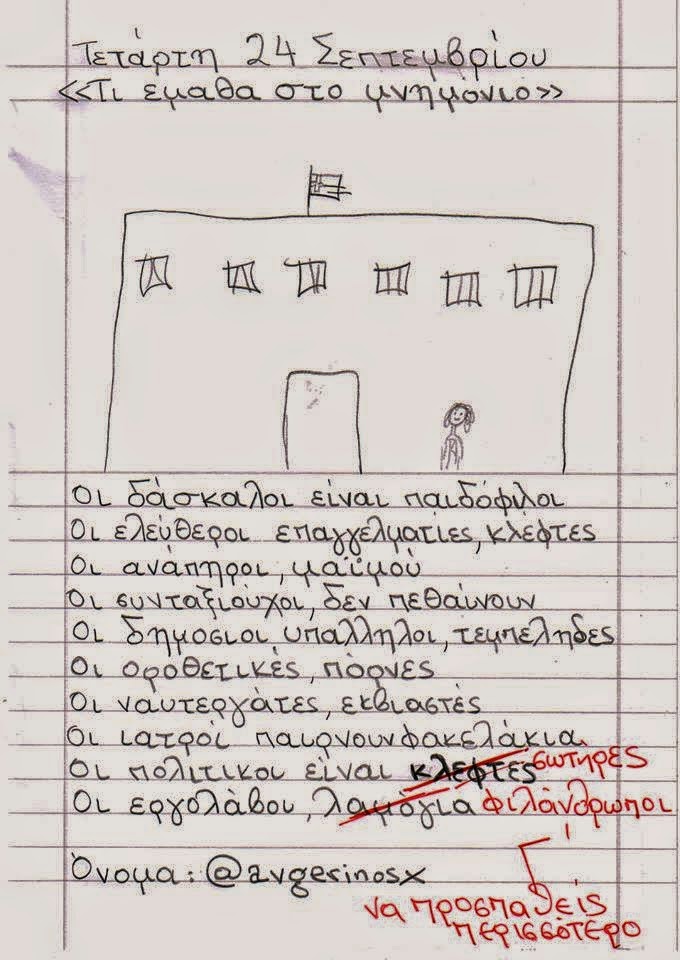 Τετάρτη 24 Σεπτεμβρίου
<<Τι εμαθα στο μνημόνιο>>
Οι δάσκαλοι είναι παιδόφιλοι
Οι ελεύθεροι επαγγελματίες, κλέφτες
Οι ανάπηροι, μαϊμού
Οι συνταξιούχοι, δεν πεθαίνουν
Οι δημοσιοι υπαλληλοι, τεμπεληδες
Οι οροθετικές, πόρνες
Οι ναυτεργάτες, εκβιαστές
Οι ιατροί παιρνουν φακελάκια
Οι πολιτικοι είναι κλέφτες σωτηρες
Οι εργολάβοι, λαμόγια φιλάνθρωποι
Όνομα: @avgerinosx
να προσπαθείς
περισσότερο